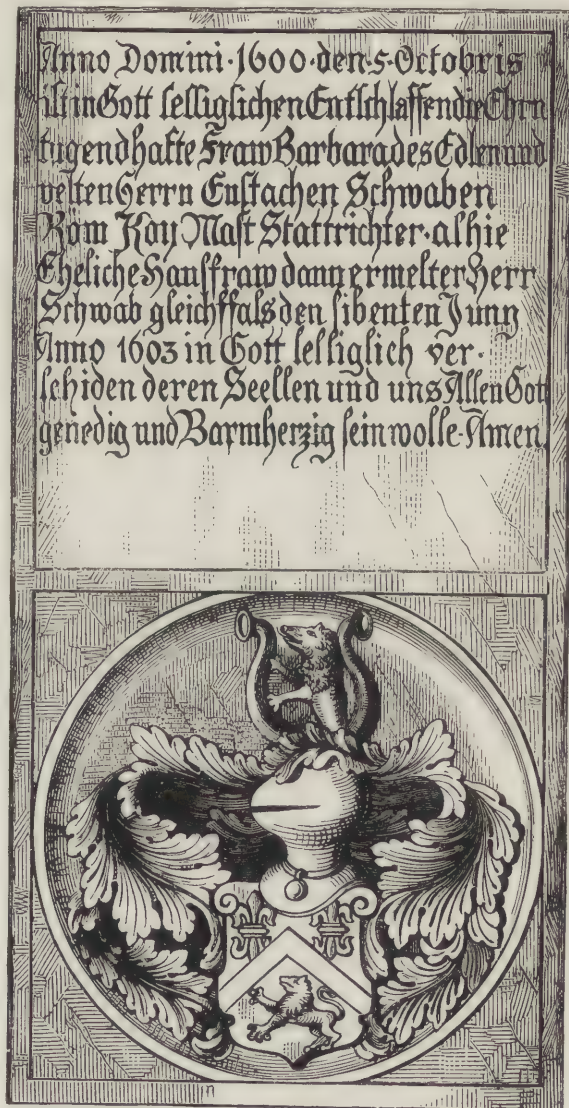 Anno Domini · 1600 · den · 5 · Octobris
ist in Gott selliglichen Entschlaffen die Ehrn
tugendhafte Fraw Barbara des Edlen und
vesten Herrn Eustachen Schwaben
Röm Kay Mast Stattrichter · alhie
Eheliche Hausfraw dann ermelter Herr
Schwab gleichffals den sibenten Juny
Anno 1603 in Gott selliglich ver ·
schiden deren Seellen und uns Allen Got
genedig und Barmherzig sein wolle · Amen